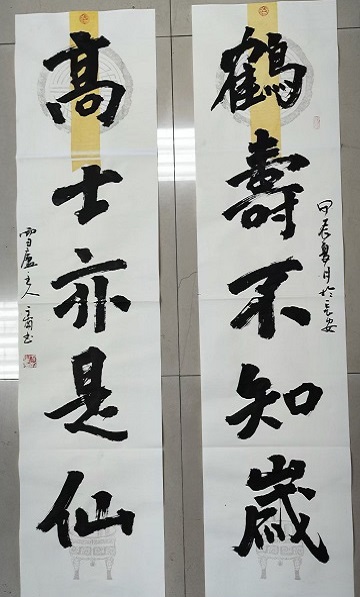 鶴壽不知歲
甲辰夏月於長安
高士亦是仙
雪廬主人